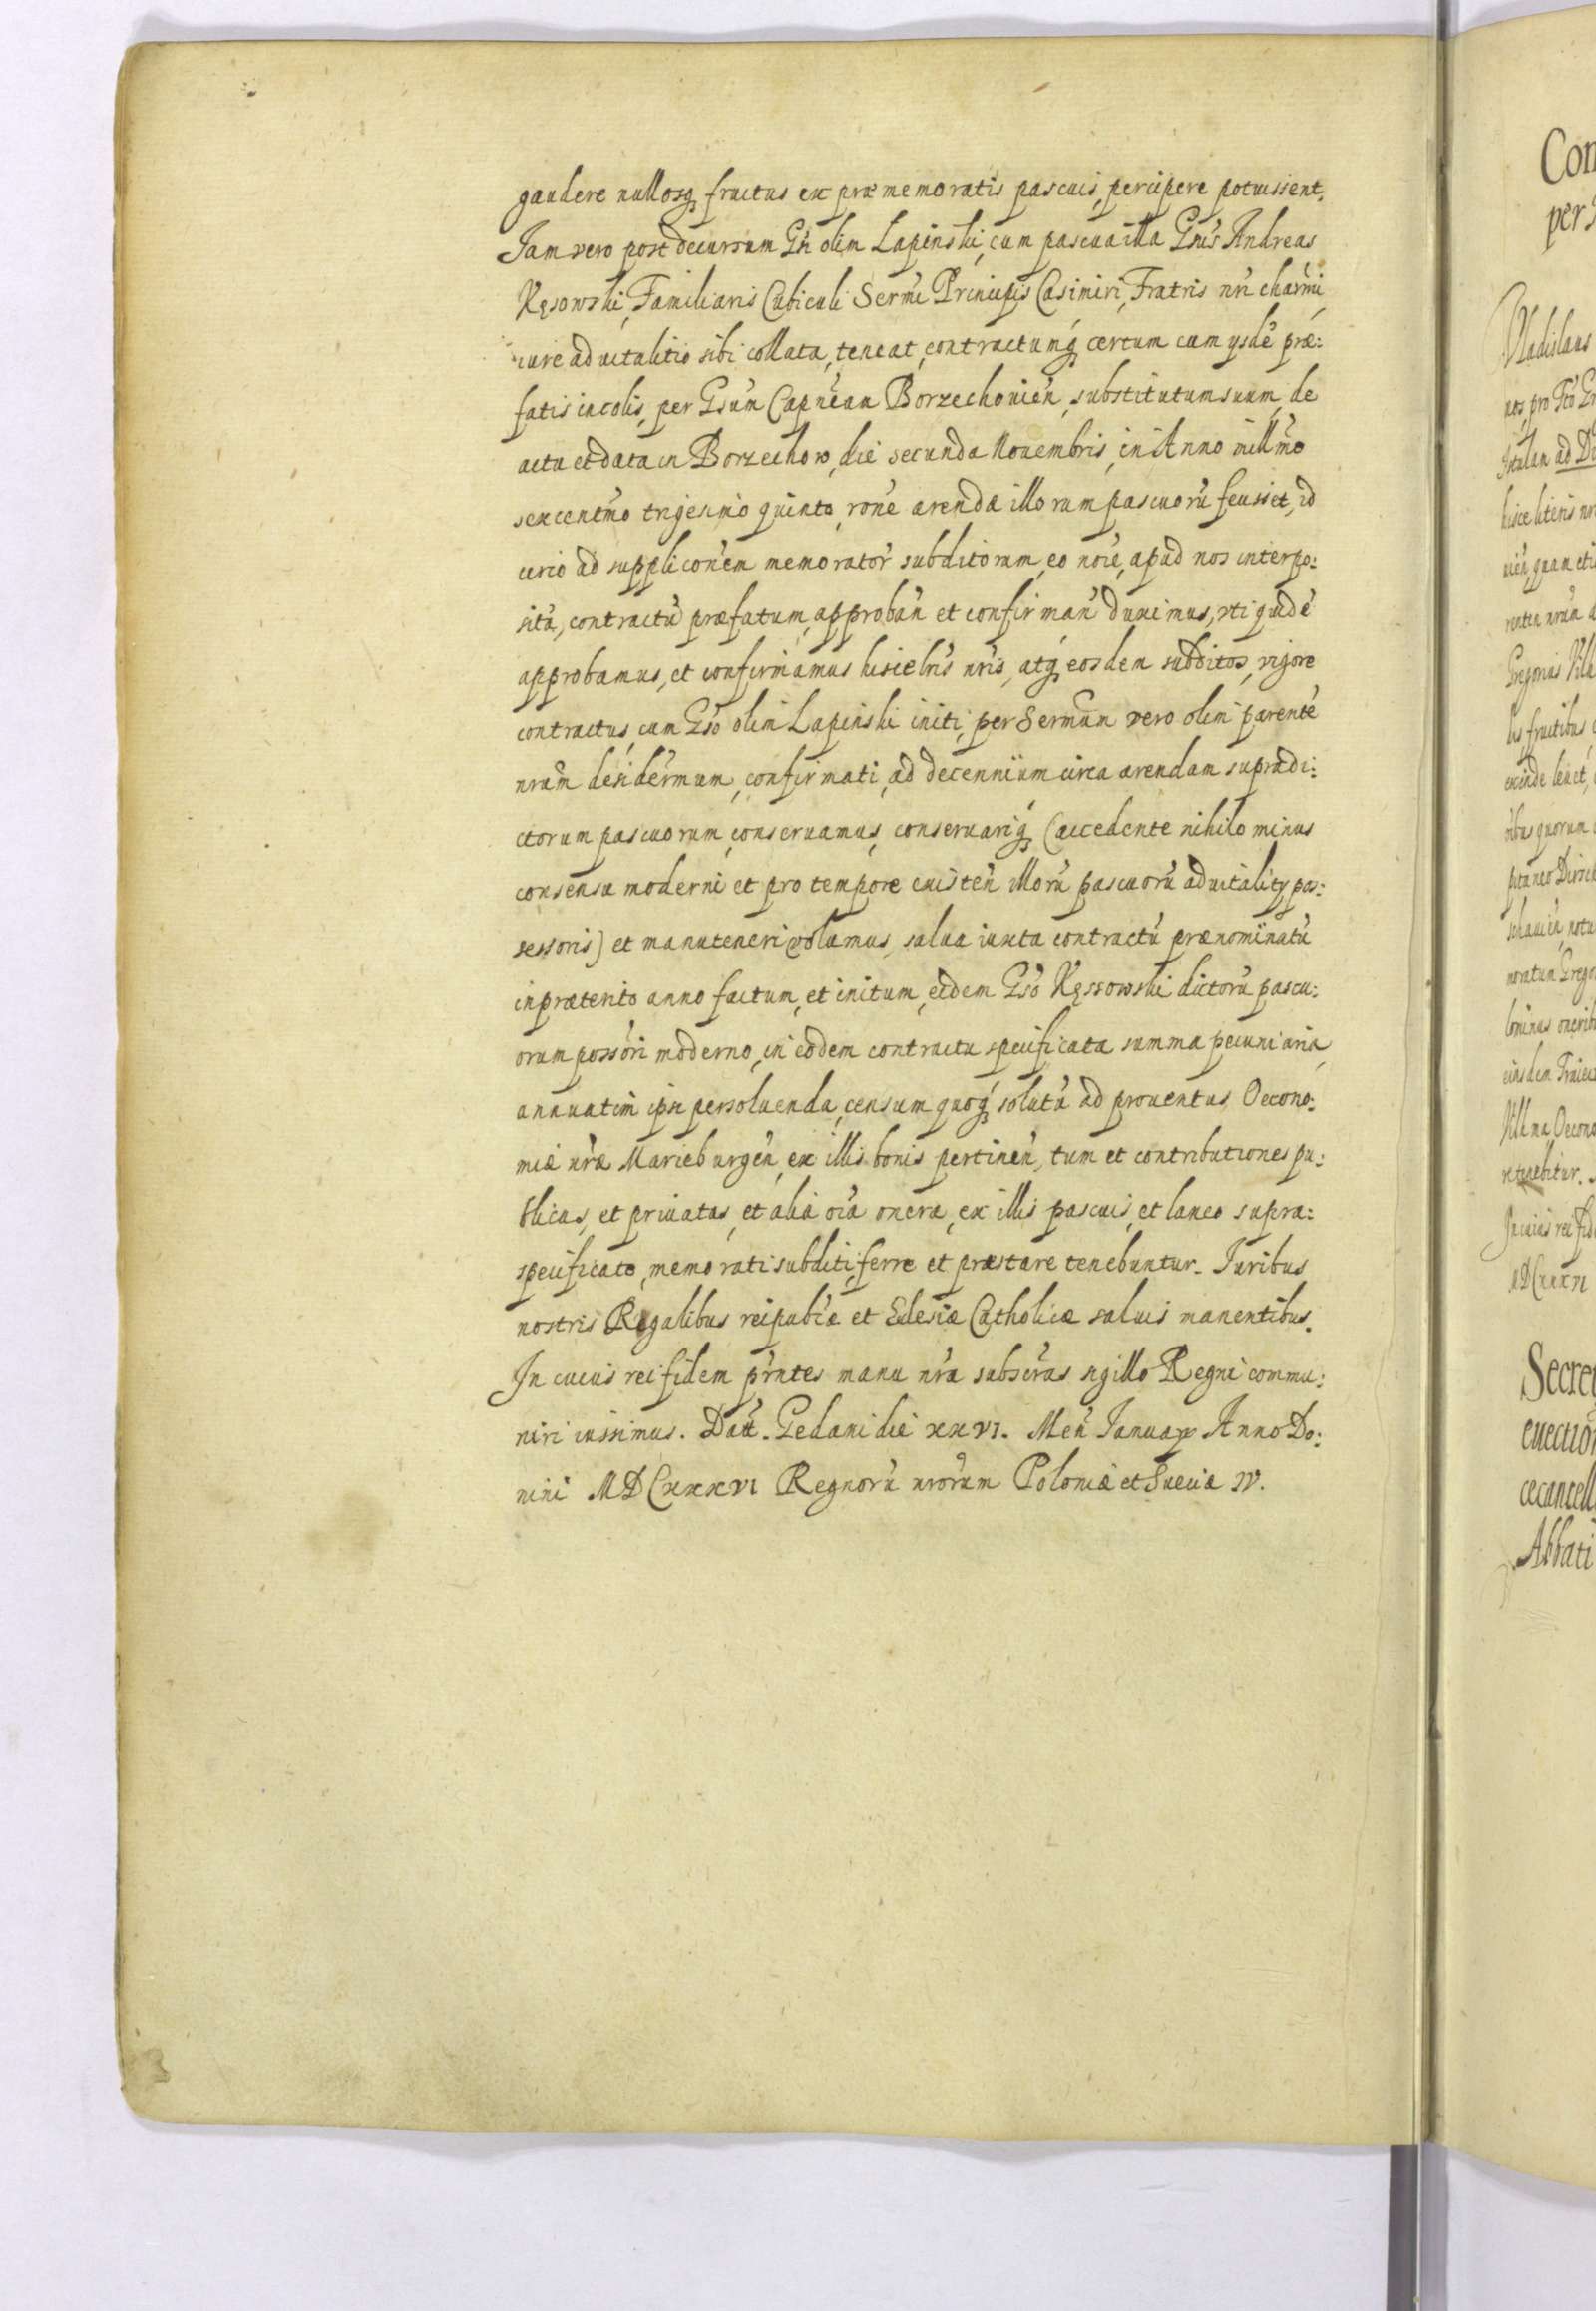 gaudere nullosq fructus ex præmemoratis pascuis, percipere potuissent.
Jam vero post decursum Gsi olim Lapinski, cum pascua illa Gsus Andreas
Kęsowski, Familiaris Cubiculi Sermi Principis Casimiri, Fratris nri charmi,
iure aduitalitio sibi collata, teneat, contractumq certum cum ysdē præ:
fatis incolis, per Gsum Capneum Borzechouien, substitutum suum, de
actu et data in Borzechow, die secunda Nouembris, in Anno millmo
sexcentmo trigesimo quinto, rone arendæ illorum pascuorū fecisset, id
circo ad supplicon̄em memorator subditorum, eo noie, apud nos interpo:
sitā, contractū præfatum, approban et confirman duximus, vti quidē
approbamus, et confirmamus hisce lris nris, atq eosdem subditos, vigore
contractus, cum Gso olim Lapinski initi, per Sermum vero olim parentē
nrum desidermum, confirmati, ad decennium circa arendam supradi:
ctorum pascuorum, conseruamus, conseruariq (accedente nihilo minus
consensu moderni et pro tempore existen illorū pascuorū aduitality pos:
sessoris) et manuteneri volumus, salua iuxta contractū prænominatū
in præterito anno factum, et initum, eidem Gso Kęssowski dictorū pascu:
orum possori moderno, in eodem contractu specificata summa pecuniaria,
annuatim ipsi persoluenda, censum quoq solutū ad prouentus Oecono:
miæ nræ Marieburgen, ex illis bonis pertinen, tum et contributiones pu:
blicas, et priuatas, et alia oia onera, ex illis pascuis, et laneo supra:
specificato, memorati subditi, ferre et præstare tenebuntur. Juribus
nostris Regalibus reipubcæ et Ecclesiæ Catholicæ saluis manentibus.
In cuius rei fidem prntes manu nra subscras sigillo Regni commu:
niri iussimus. Datt. Gedani die xxvi. Men Januarii Anno Do:
mini MDCxxxvi Regnorū nrorum Poloniæ et Sueciæ iv.
Con
per
Vladislaus
nos, pro
ad
hisce literis nr
quam eti
Gregorius
lis, fructibus
exinde
quorum
Oecono
retinebitur.
In cuius rei fid
MDCxxxvi
Secret
euection
cecancell
Abbati